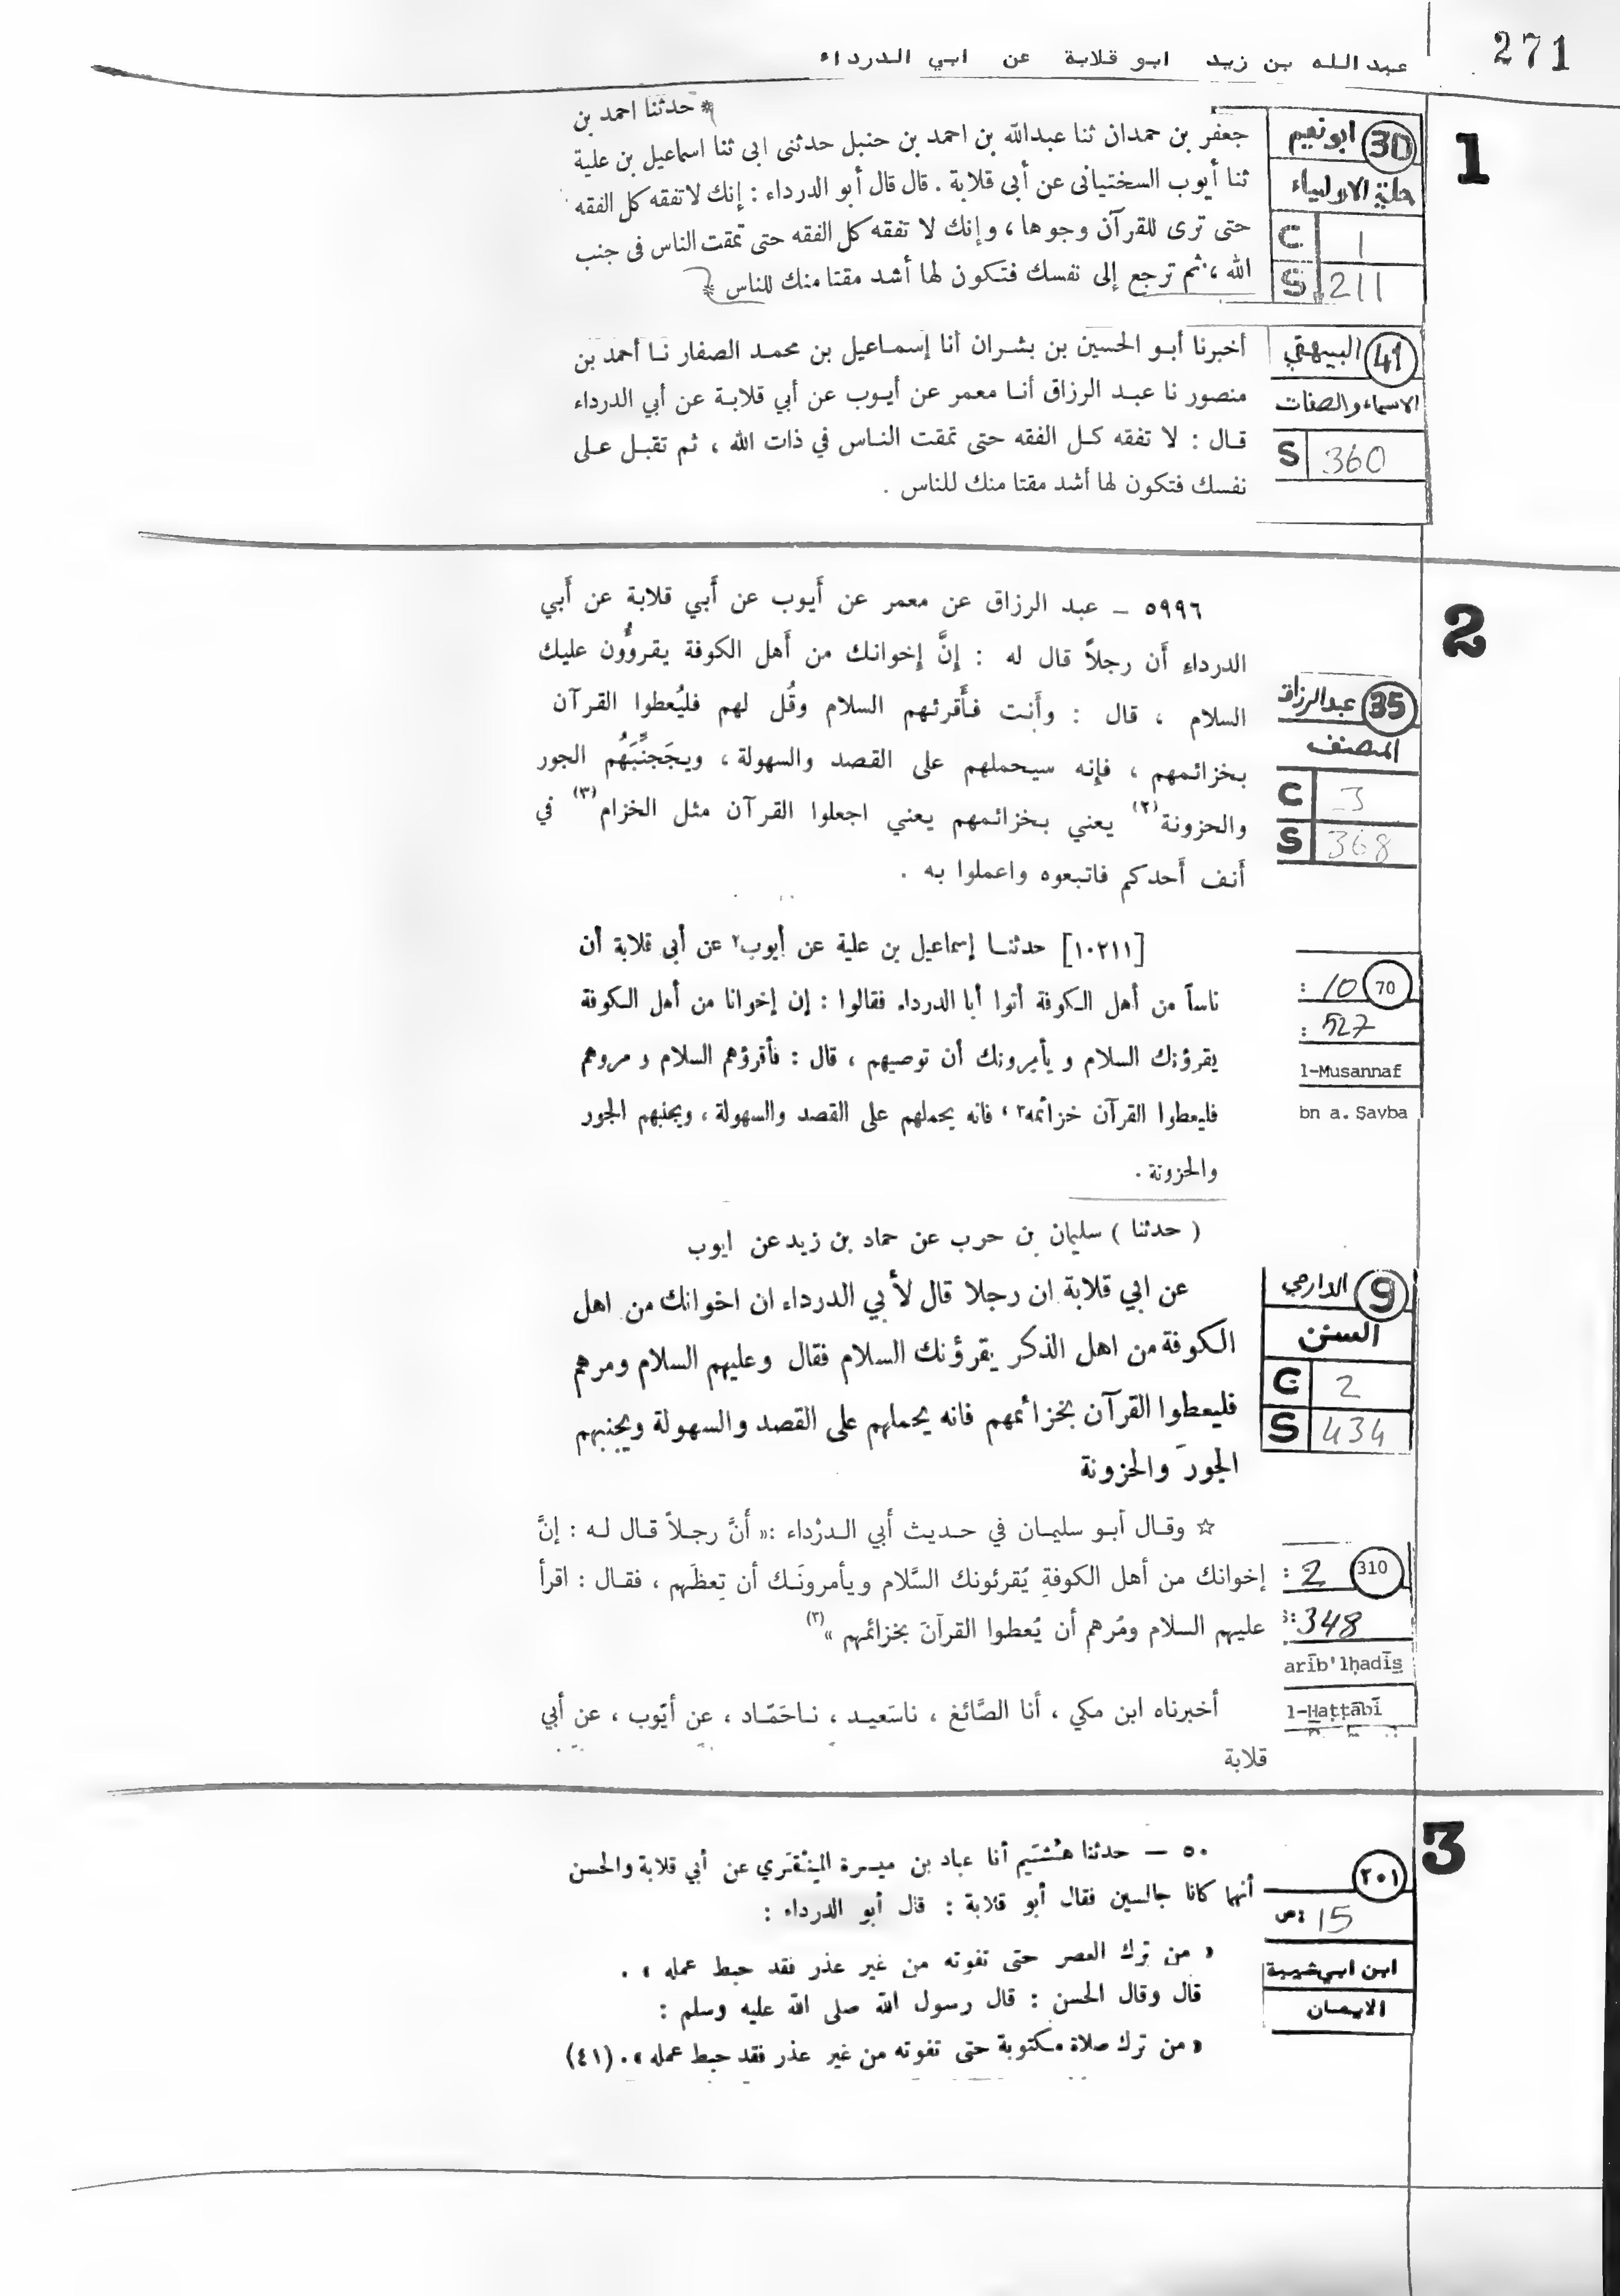 271
عبدالله بن زيد ابو قلابة عن ابي الدرداء
1
30 ابو نعيم
حلية الاولياء
C 1
S 211
* حدثنا احمد بن
جعفر بن حمدان ثنا عبدالله بن احمد بن حنبل حدثنى ابى ثنا اسماعيل بن علية
ثنا أيوب السختيانى عن أبى قلابة . قال قال أبو الدرداء : إنك لا تفقه كل الفقه
حتى ترى للقرآن وجوها ، وإنك لا تفقه كل الفقه حتى تمقت الناس فى جنب
الله ، ثم ترجع إلى نفسك فتكون لها أشد مقتا منك للناس *
41 البيهقي
الاسماء والصفات
S 360
أخبرنا أبو الحسين بن بشران أنا إسماعيل بن محمد الصفار نا أحمد بن
منصور نا عبد الرزاق أنا معمر عن أيوب عن أبي قلابة عن أبي الدرداء
قال : لا تفقه كل الفقه حتى تمقت الناس في ذات الله ، ثم تقبل على
نفسك فتكون لها أشد مقتا منك للناس .
2
35 عبدالرزاق
المصنف
C 3
S 368
٥٩٩٦ – عبد الرزاق عن معمر عن أَيوب عن أَبي قلابة عن أَبي
الدرداءِ أَن رجلاً قال له : إِنَّ إِخوانك من أَهل الكوفة يقروُّون عليك
السلام ، قال : وأَنت فأَقرئهم السلام وقُل لهم فليُعطوا القرآن
بخزائمهم ، فإِنه سيحملهم على القصد والسهولة ، ويجَجنِّبَهُم الجور
والحزونة (٢) يعني بخزائمهم يعني اجعلوا القرآن مثل الخزام (٣) في
أَنف أَحدكم فاتبعوه واعملوا به .
70 10 :
527 :
l-Musannaf
bn a. Şayba
[١٠٢١١] حدثنا إسماعيل بن علية عن أيوب٢ عن أبى قلابة أن
ناساً من أهل الكوفة أتوا أبا الدرداء فقالوا : إن إخوانا من أهل الكوفة
يقرؤنك السلام و يأمرونك أن توصيهم ، قال : فأقرؤهم السلام و مروهم
فليعطوا القرآن خزائمه٣ ، فانه يحملهم على القصد والسهولة ، ويجنبهم الجور
والحزونة .
9 الدارمي
السنن
C 2
S 434
( حدثنا ) سليمان بن حرب عن حماد بن زيد عن ايوب
عن ابي قلابة ان رجلا قال لأبي الدرداء ان اخوانك من اهل
الكوفة من اهل الذكر يقرؤنك السلام فقال وعليهم السلام ومرهم
فليعطوا القرآن بخزائمهم فانه يحملهم على القصد والسهولة ويجنبهم
الجور والحزونة
310 2 :
s: 348
arīb'lḥadīs̱
l-Ḫaṭṭābī
☆ وقال أبو سليمان في حديث أبي الدرْداء :« أَنَّ رجلاً قال له : إنَّ
إخوانك من أهل الكوفةِ يُقرئونك السَّلام ويأمرونَك أن تِعظَهم ، فقال : اقرأ
عليهم السلام ومُرهم أن يُعطوا القرآنَ بخزائمهم » (٣)
أخبرناه ابن مكي ، أنا الصَّائغ ، ناسَعيد ، ناحَمّاد ، عن أيّوب ، عن أبي
قلابة
3
٢٠١
ص: 15
ابن ابي شيبة
الايمان
٥٠ — حدثنا هُشَيم أنا عباد بن ميسرة المِنْقَري عن أبي قلابة والحسن
أنهما كانا جالسين فقال أبو قلابة : قال أبو الدرداء :
« من ترك العصر حتى تفوته من غير عذر فقد حبط عمله » .
قال وقال الحسن : قال رسول الله صلى الله عليه وسلم :
« من ترك صلاة مكتوبة حتى تفوته من غير عذر فقد حبط عمله » . (٤١)